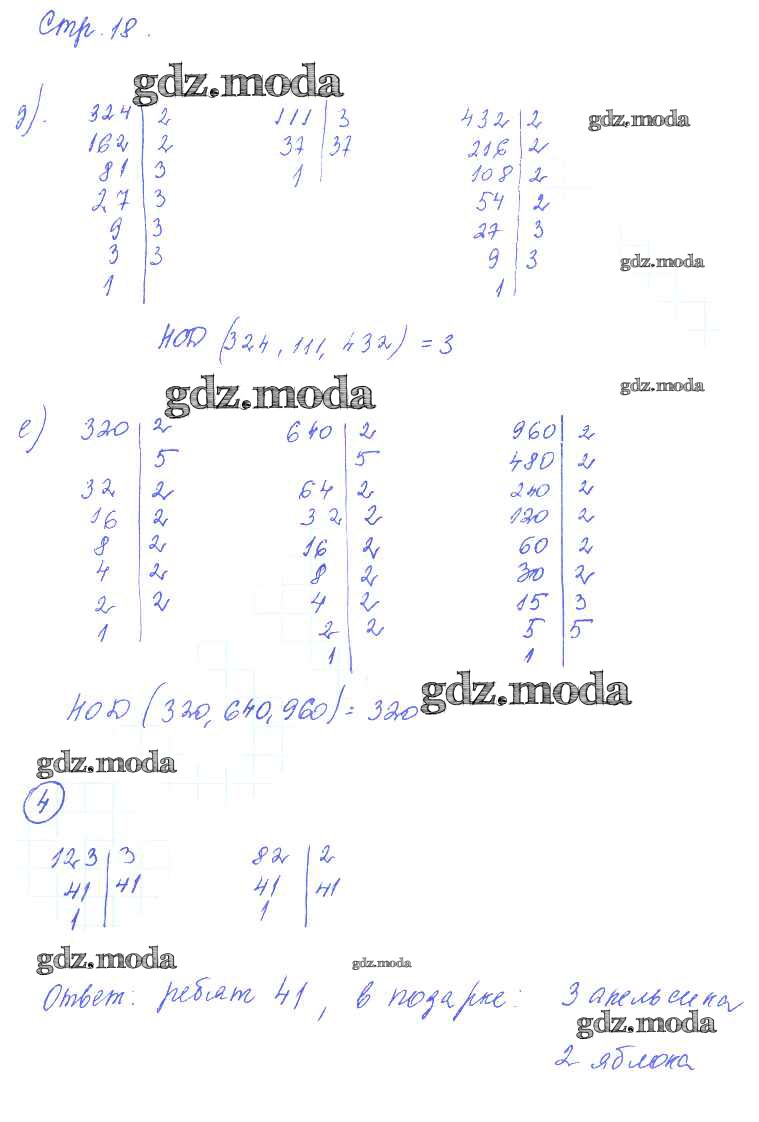 Стр. 18.
gdz.moda
д).
324 | 2
111 | 3
432 | 2
gdz.moda
162 | 2
37 | 37
216 | 2
81 | 3
1
108 | 2
27 | 3
54 | 2
9 | 3
27 | 3
3 | 3
9 | 3
gdz.moda
1
1
НОД (324, 111, 432) = 3
gdz.moda
gdz.moda
е)
320 | 2
640 | 2
960 | 2
5
5
480 | 2
32 | 2
64 | 2
240 | 2
16 | 2
32 | 2
120 | 2
8 | 2
16 | 2
60 | 2
4 | 2
8 | 2
30 | 2
2 | 2
4 | 2
15 | 3
1
2 | 2
5 | 5
1
1
НОД (320, 640, 960) = 320
gdz.moda
gdz.moda
4
123 | 3
82 | 2
41 | 41
41 | 41
1
1
gdz.moda
gdz.moda
Ответ: ребят 41, в подарке: 3 апельсина
gdz.moda
2 яблока